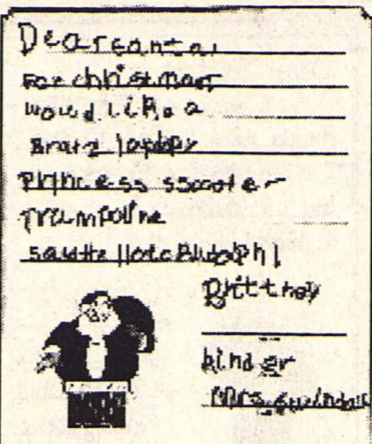 Dear santa,
For christmas
would like a
Bratz laptop
Princess scooter
Trampoline
say hello to Rudolph!
Brittney
kinder
Mrs.